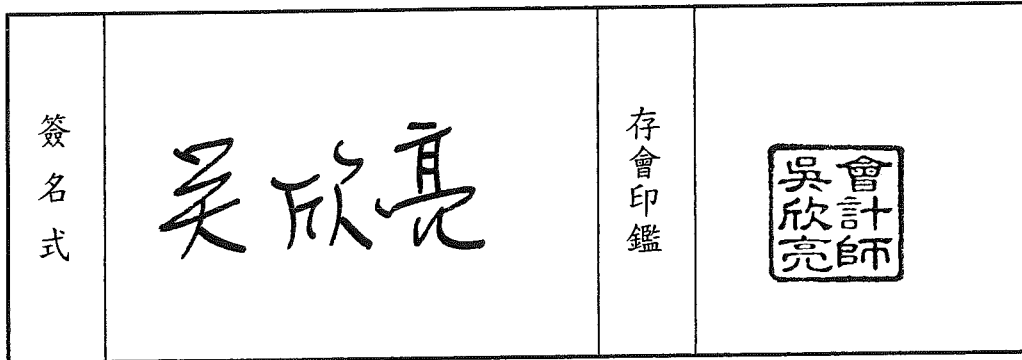 簽名式
吳欣亮
存會印鑑
會計師
吳欣亮